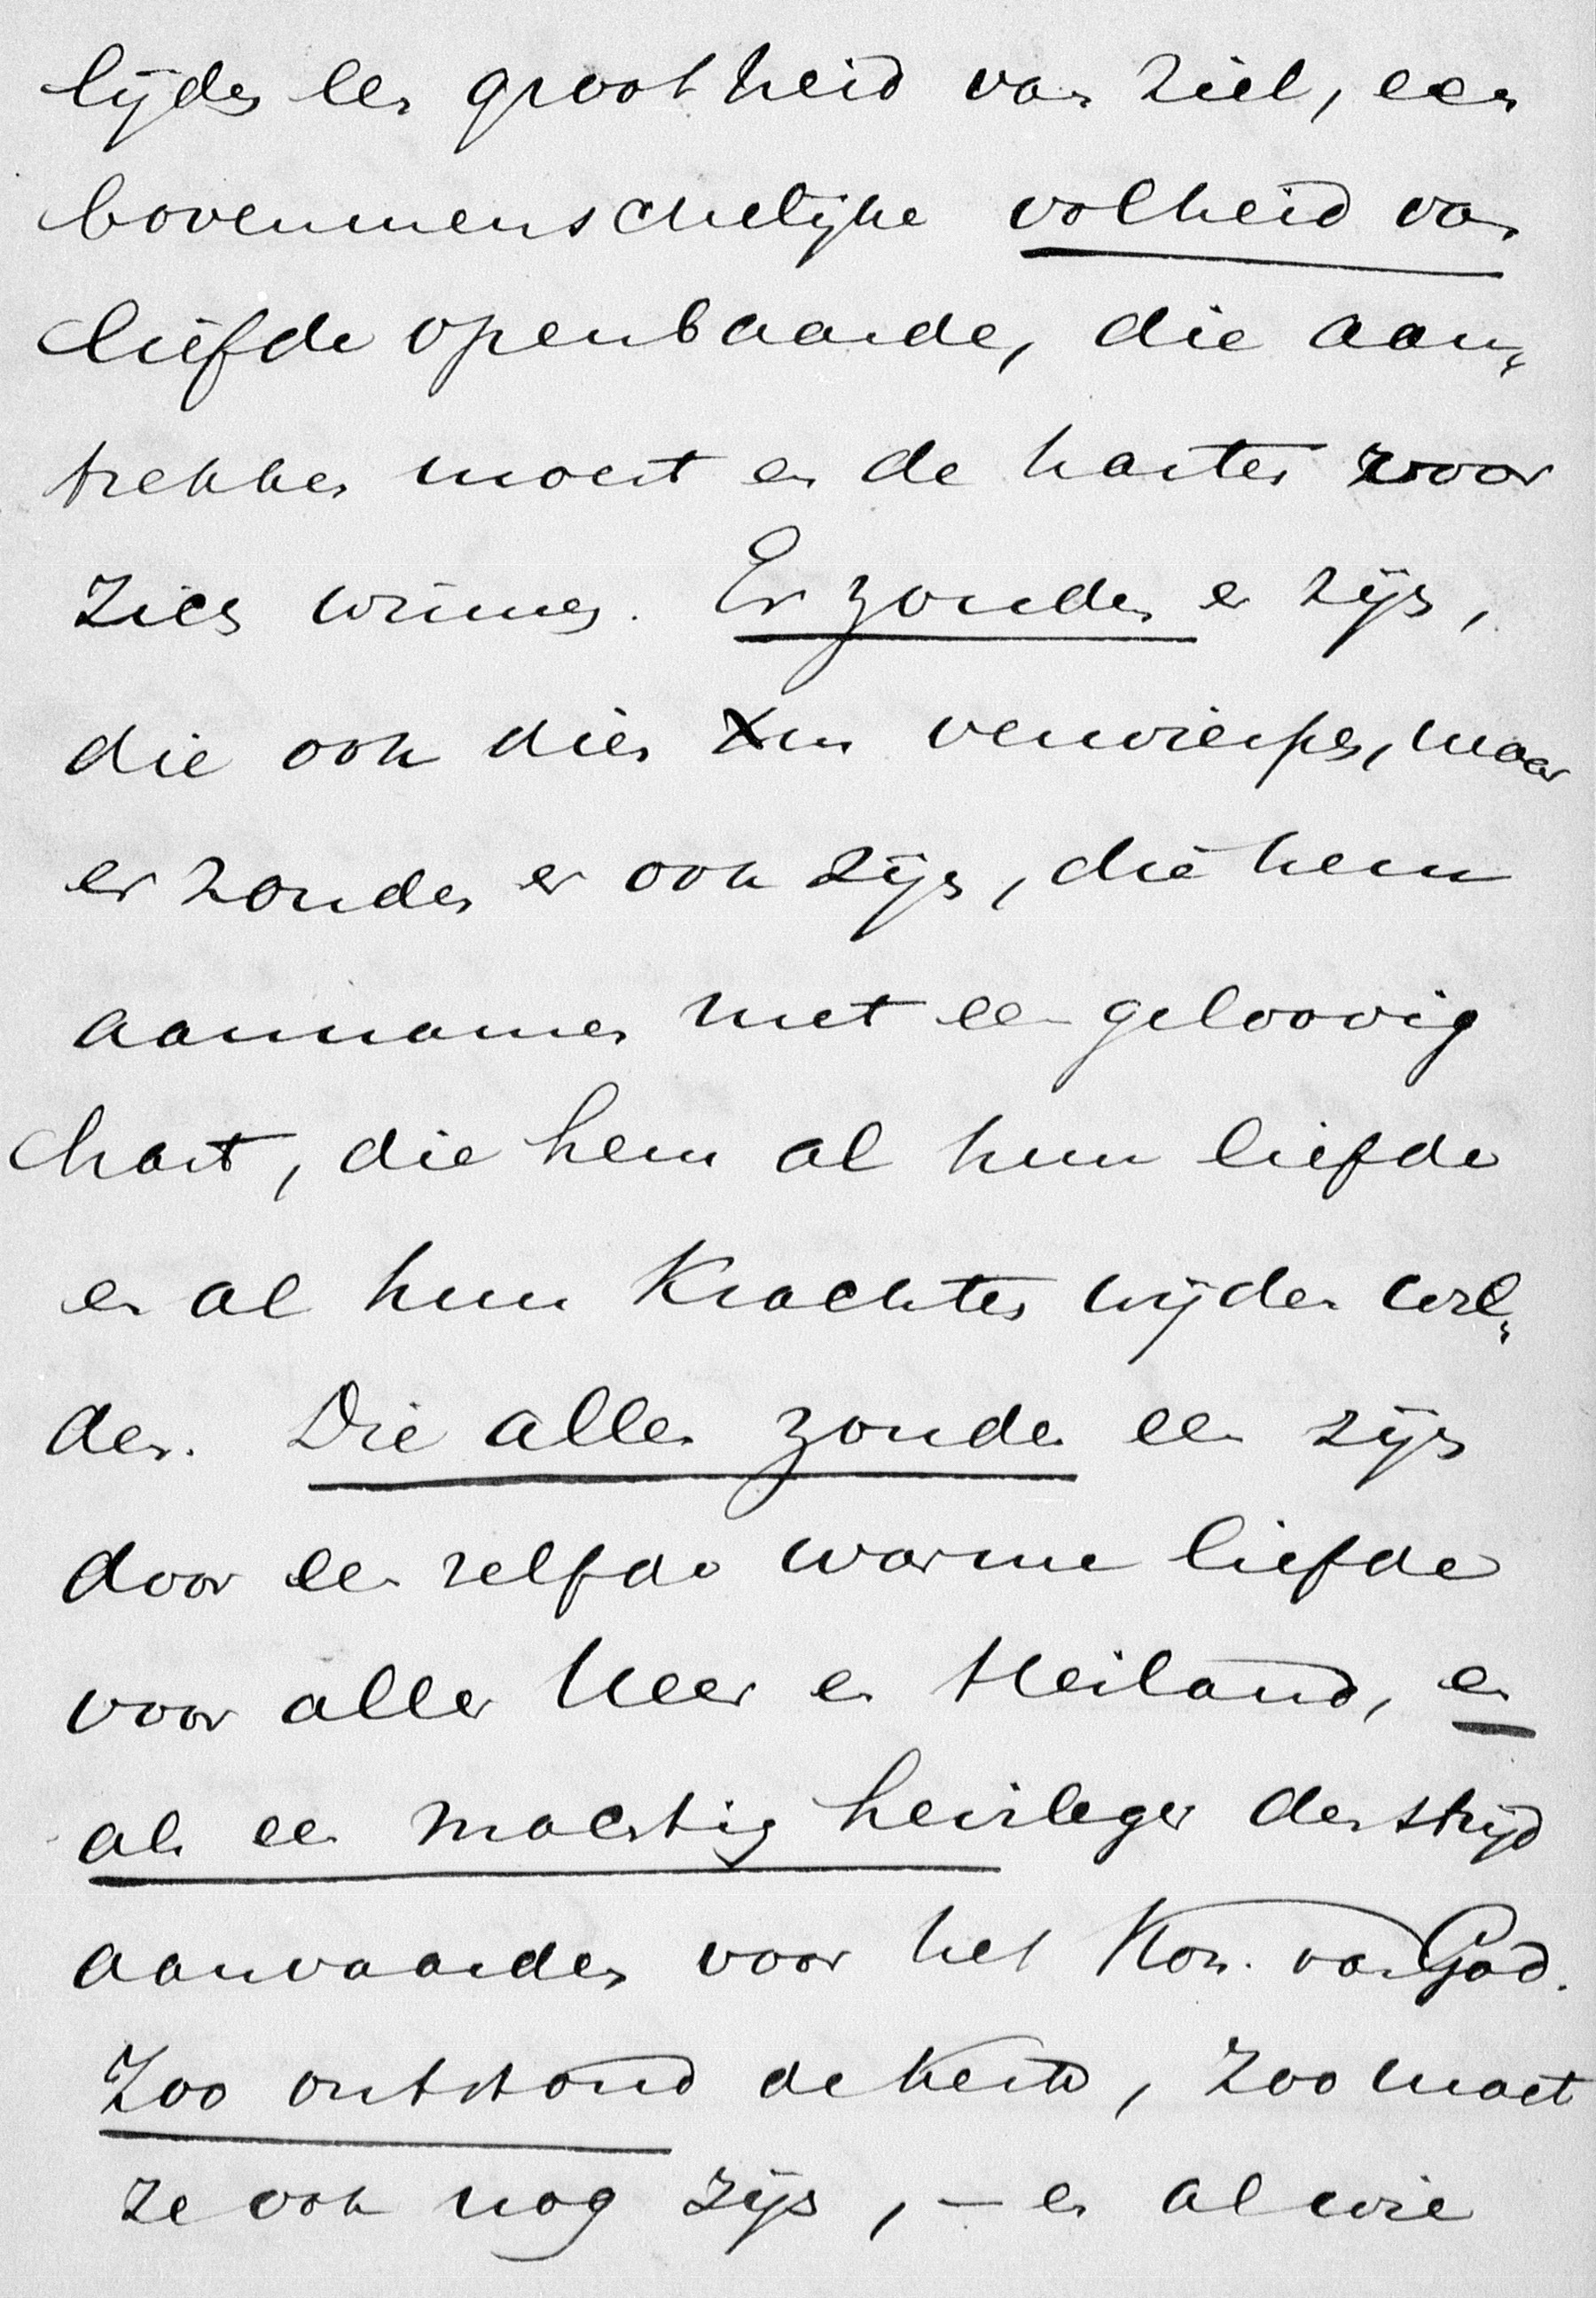 lijden een grootheid van ziel, een
bovenmenschelijke volheid van
liefde openbaarde, die aan-
trekken moest en de harten voor
zich winnen. Er zouden er zijn,
die ook dien Xus verwierpen, maar
er zouden er ook zijn, die hem
aannamen met een geloovig
hart, die hem al hun liefde
en al hun krachten wijden wil-
den. Die allen zouden een zijn
door een zelfde warme liefde
voor aller Heer en Heiland, en
als een machtig heirleger den strijd
aanvaarden voor het Kon. van God.
Zoo ontstond de Kerk, zoo moet
ze ook nog zijn, – en al wie